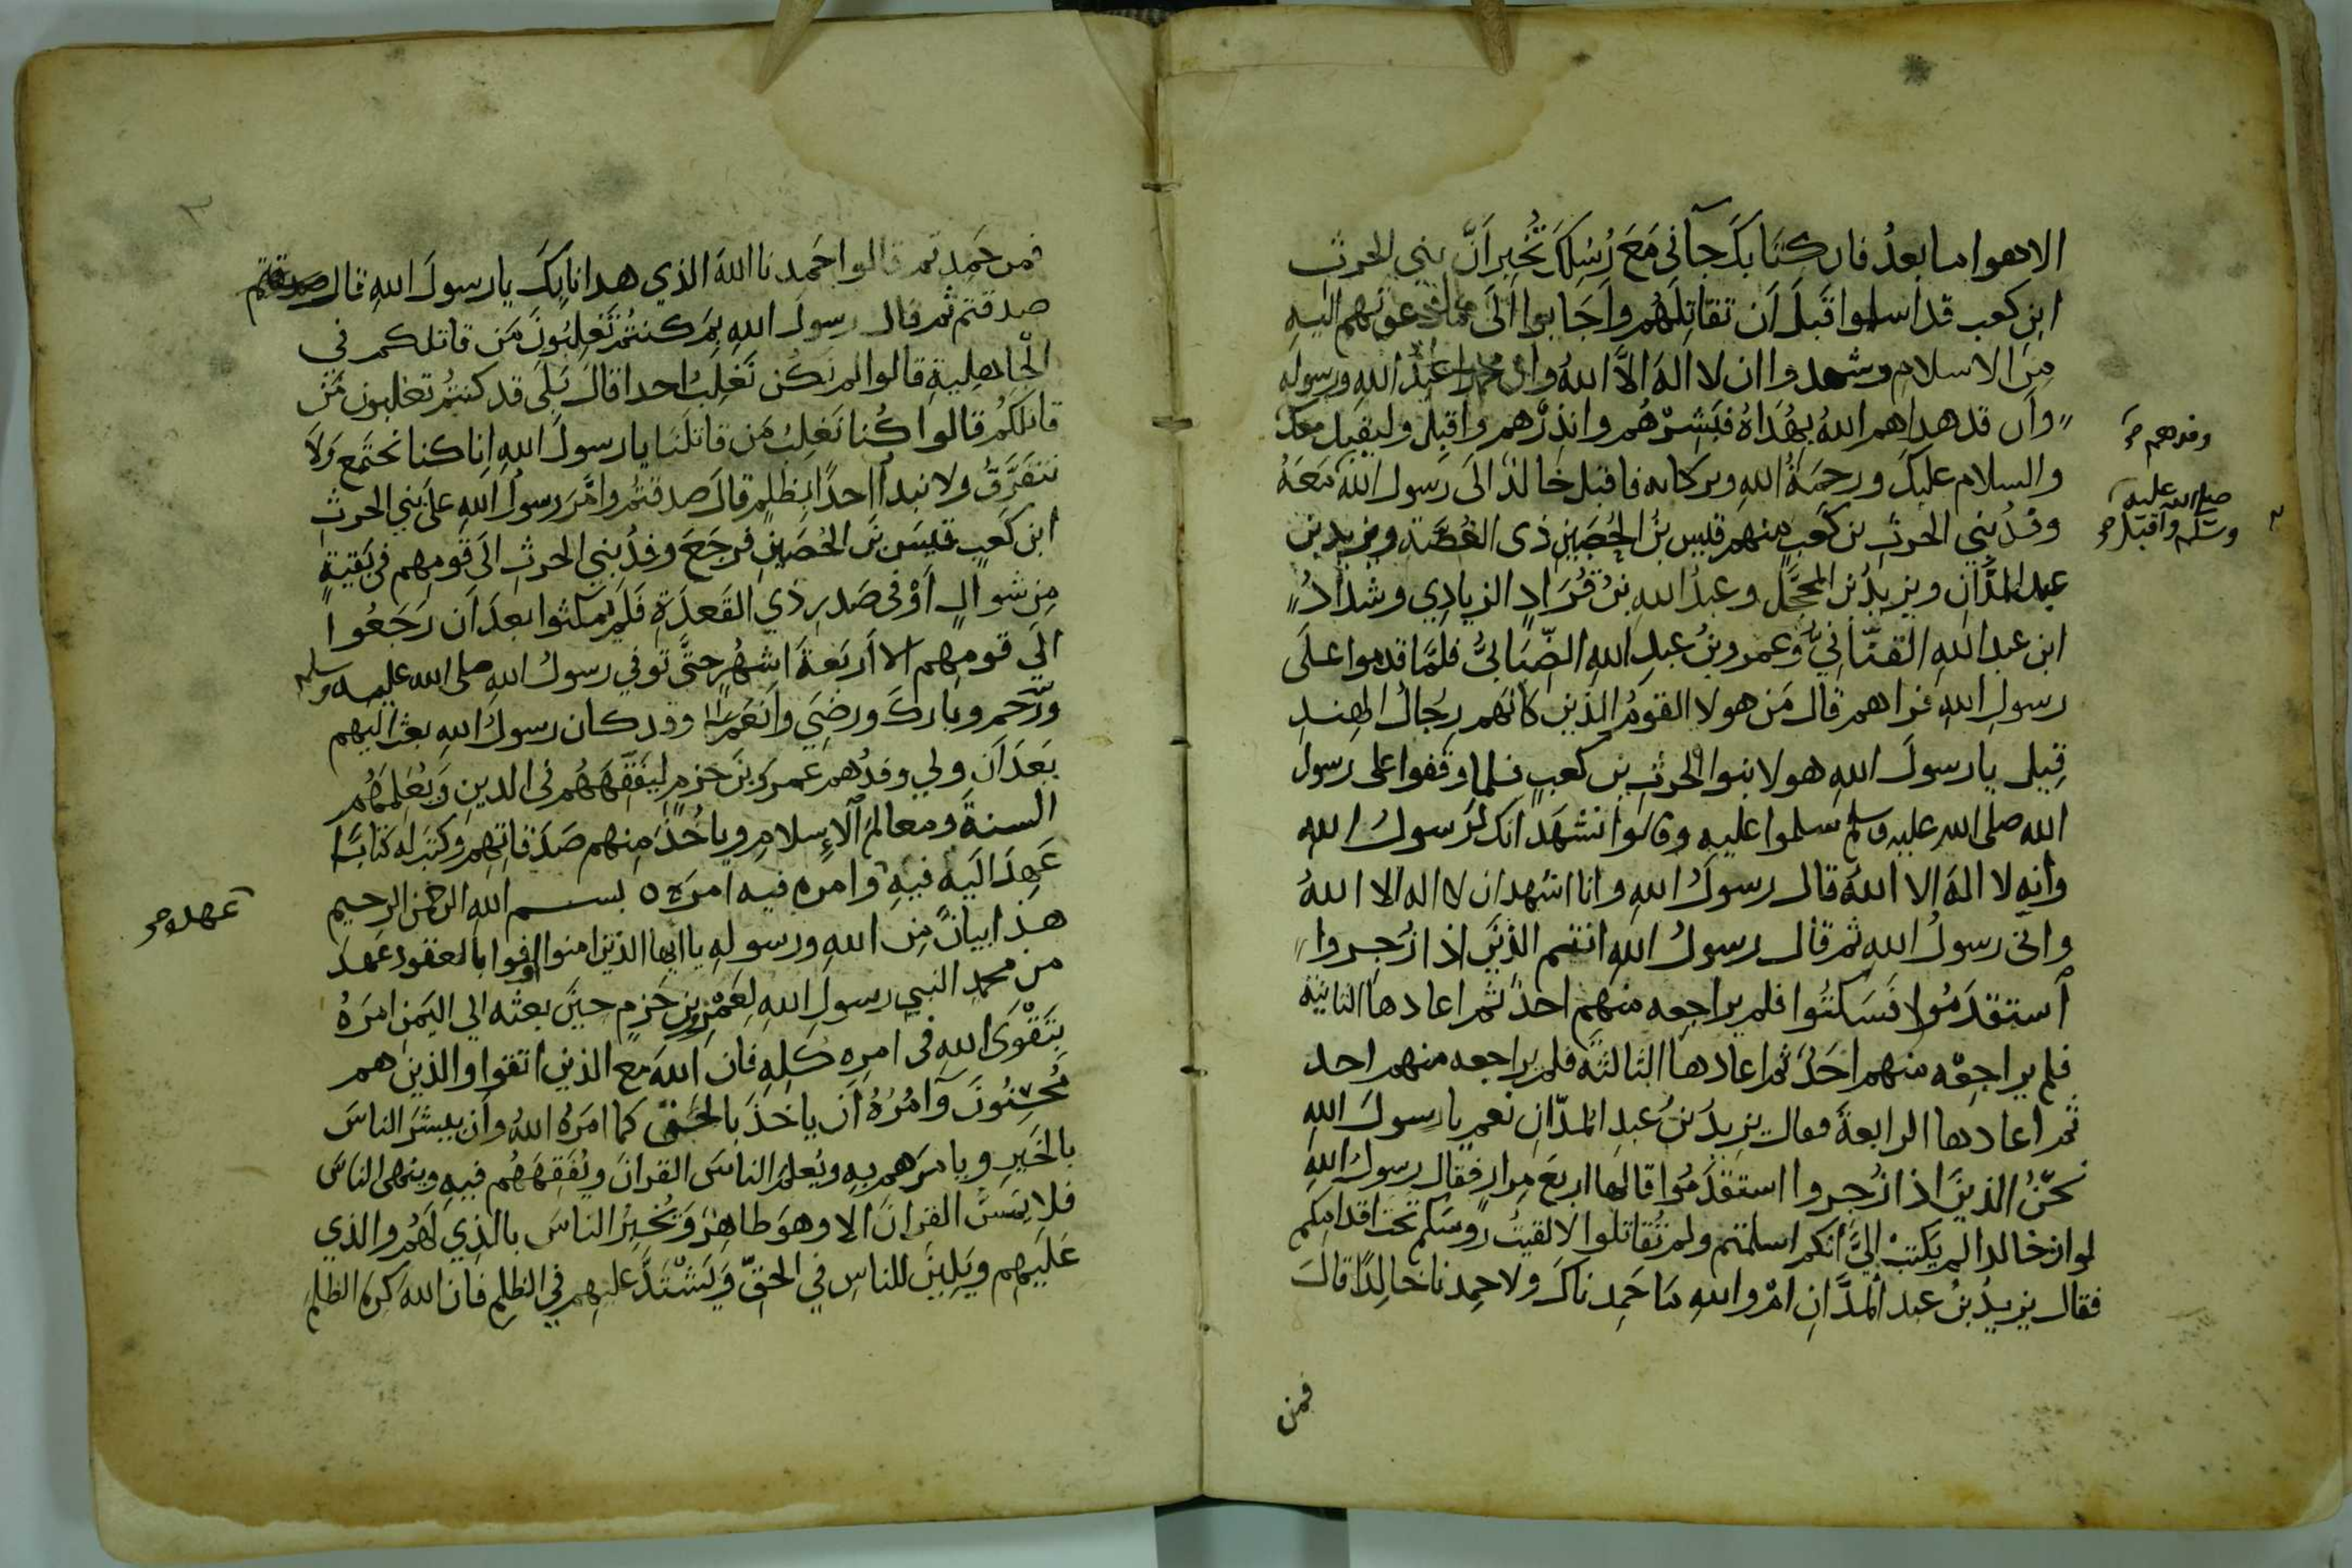 الا هو اما بعد فان كتابك جآنى مع رسلك تخبر ان بني الحرث
ابن كعب قد اسلموا قبل ان تقاتلهم واجابوا الى ما دعوتهم اليه
من الاسلام وشهدوا ان لا اله الا الله وان محمدا عبد الله ورسوله
وان قد هداهم الله بهداه فبشرهم وانذرهم واقبل وليقبل معك
وفدهم
والسلام عليك ورحمة الله وبركاته فاقبل خالد الى رسول الله معه
صلى الله عليه
وسلم واقبل
وفد بني الحرث بن كعب منهم قيس بن الحصين ذى الغصة ويزيد بن
عبد المدان ويزيد بن المحجل وعبد الله بن قراد الزيادي وشداد
ابن عبد الله القناني وعمرو بن عبد الله الضبابي فلما قدموا على
رسول الله فراهم قال من هولا القوم الذين كانهم رجال الهند
قيل يا رسول الله هولا بنوا الحرث بن كعب فلما وقفوا على رسول
الله صلى الله عليه وسلم سلموا عليه وقالوا نشهد انك لرسول الله
وانه لا اله الا الله قال رسول الله وانا اشهد ان لا اله الا الله
واني رسول الله ثم قال رسول الله انتم الذين اذا زجروا
استقدموا فسكتوا فلم يراجعه منهم احد ثم اعادها الثانية
فلم يراجعه منهم احد ثم اعادها الثالثة فلم يراجعه منهم احد
ثم اعادها الرابعة فقال يزيد بن عبد المدان نعم يا رسول الله
نحن الذين اذا زجروا استقدموا قالها اربع مرار فقال رسول الله
لو ان خالدا لم يكتب الي انكم اسلمتم ولم تقاتلوا لالقيت روسكم تحت اقدامكم
فقال يزيد بن عبد المدان ام والله ما حمدناك ولا حمدنا خالدا قال
فمن
فمن حمدتم قالوا حمدنا الله الذي هدانا بك يا رسول الله قال صدقتم
صدقتم ثم قال رسول الله بم كنتم تغلبون من قاتلكم في
الجاهلية قالوا لم نكن نغلب احدا قال بلى قد كنتم تغلبون من
قاتلكم قالوا كنا نغلب من قاتلنا يا رسول الله انا كنا نجتمع ولا
نتفرق ولا نبدأ احدا بظلم قال صدقتم وامر رسول الله على بني الحرث
ابن كعب قيس بن الحصين فرجع وفد بني الحرث الى قومهم في بقية
من شوال او فى صدر ذي القعدة فلم يمكثوا بعد ان رجعوا
الى قومهم الا اربعة اشهر حتى توفي رسول الله صلى الله عليه وسلم
ورحم وبارك ورضي وانعم وقد كان رسول الله بعث اليهم
بعد ان ولي وفدهم عمرو بن حزم ليفقههم في الدين ويعلمهم
السنة ومعالم الاسلام وياخذ منهم صدقاتهم وكتب له كتابا
عهد اليه فيه وامره فيه امره ٥ بسم الله الرحمن الرحيم
عهده
هذا بيان من الله ورسوله يا ايها الذين امنوا اوفوا بالعقود عهد
من محمد النبي رسول الله لعمرو بن حزم حين بعثه الي اليمن امره
بتقوى الله فى امره كله فان الله مع الذين اتقوا والذين هم
محسنون وآمره ان ياخذ بالحق كما امره الله وان يبشر الناس
بالخير ويامرهم به ويعلم الناس القران ويفقههم فيه وينهى الناس
فلا يمس القران الا وهو طاهر ويخبر الناس بالذي لهم والذي
عليهم ويلين للناس في الحق ويشتد عليهم في الظلم فان الله كره الظلم